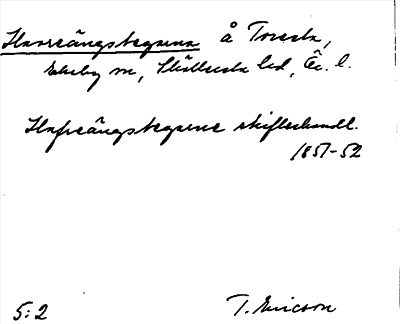 Havreängstegarna å Toresta,
Ekeby sn, Sköllersta hd, Ör. l.
Hafreängstegarne skifteshandl.
1851-52
5:2 T. Ericson